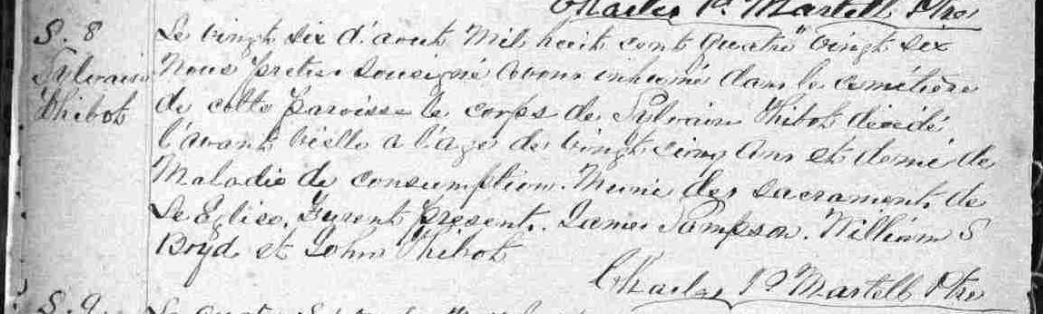 Charles P. Martell Ptre
S. 8
Sylvain
Thibot
Le vingt six d'aout Mil huit cent quatre vingt six
Nous pretre sousigné avons inhumé dans le cemétière
de cette paroisse le corps de Sylvain Thibot décédé
l'avant vielle a l'age de vingt cinq ans et demi de
Maladie de consumption. Munie des sacrament de
Le Eglise. Furent present. James Sampson. William S
Boyd et John Thibot
Charles P. Martell Ptre
S. 9
Le quatre